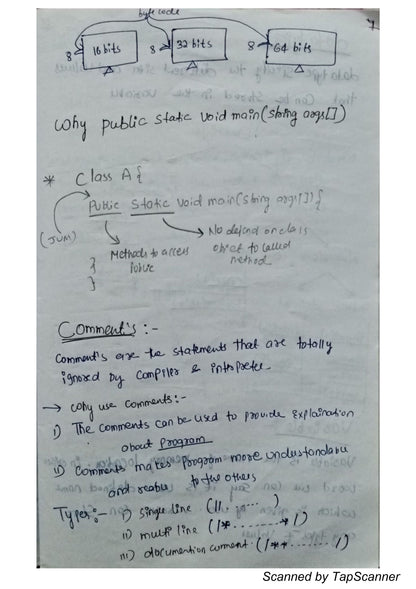 byte code
7
8 16 bits 8 32 bits 8 64 bits
Why public static void main(string args[])
* Class A {
Public Static void main(string args[]) {
(JVM)
No depend on class
object to called
method
Methods to access
Public
}
}
Comment's :-
Comment's are the statements that are totally
ignored by compiler & interpreter.
→ Why use comments:-
i) The comments can be used to provide Explaination
about Program
ii) Comments makes program more understandable
and to the others
Types:- i) single line (//......)
ii) multi line (/*........*/)
iii) documention comment (/**.......*/)
Scanned by TapScanner